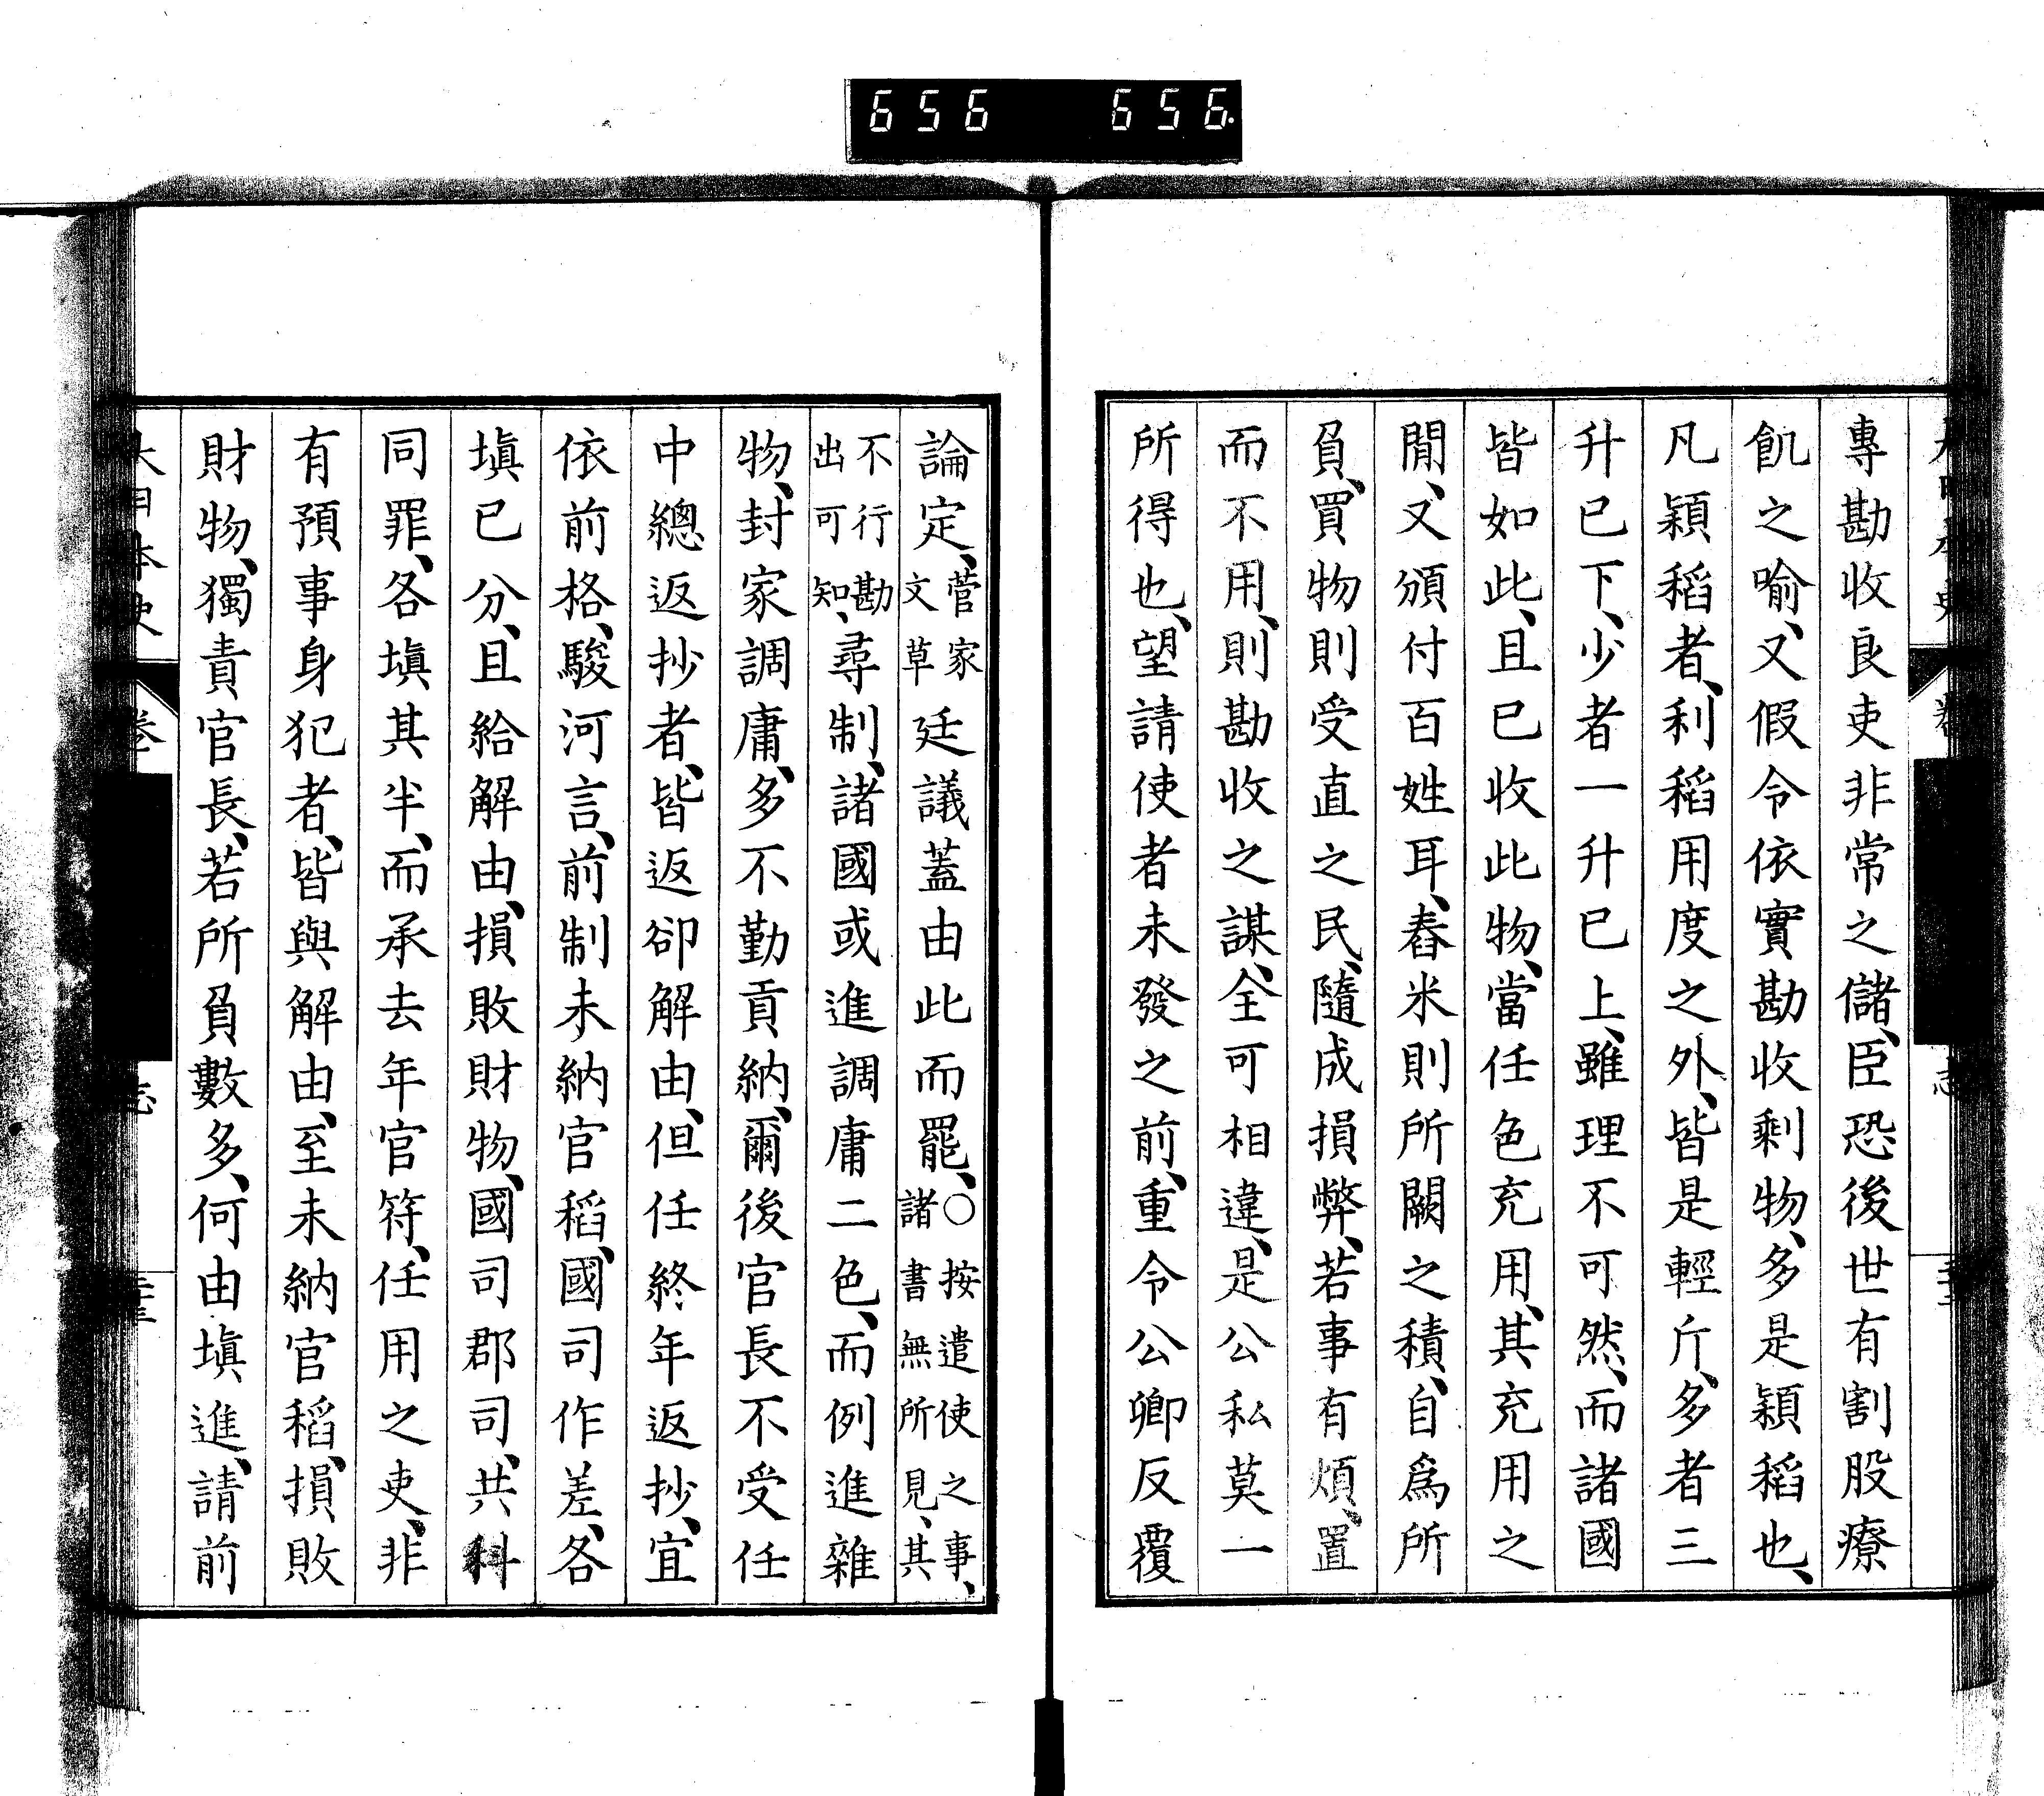 656 656.
專勘收良吏非常之儲、臣恐後世有割股療
飢之喩、又假令依實勘收剩物、多是穎稻也、
凡穎稻者、利稻用度之外、皆是輕斤、多者三
升已下、少者一升已上、雖理不可然、而諸國
皆如此、且已收此物、當任色充用、其充用之
閒、又頒付百姓耳、舂米則所闕之積、自爲所
負、買物則受直之民、隨成損弊、若事有煩、置
而不用、則勘收之謀、全可相違、是公私莫一
所得也、望請使者未發之前、重令公卿反覆
論定、菅家文草廷議蓋由此而罷、○按遣使之事、諸書無所見、其
不行勘出可知、尋制、諸國或進調庸二色、而例進雜
物、封家調庸、多不勤貢納、爾後官長不受任
中總返抄者、皆返卻解由、但任終年返抄、宜
依前格、駿河言、前制未納官稻、國司作差、各
塡已分、且給解由、損敗財物、國司郡司、共科
同罪、各塡其半、而承去年官符、任用之吏、非
有預事身犯者、皆與解由、至未納官稻、損敗
財物、獨責官長、若所負數多、何由塡進、請前
大日本史
卷
志